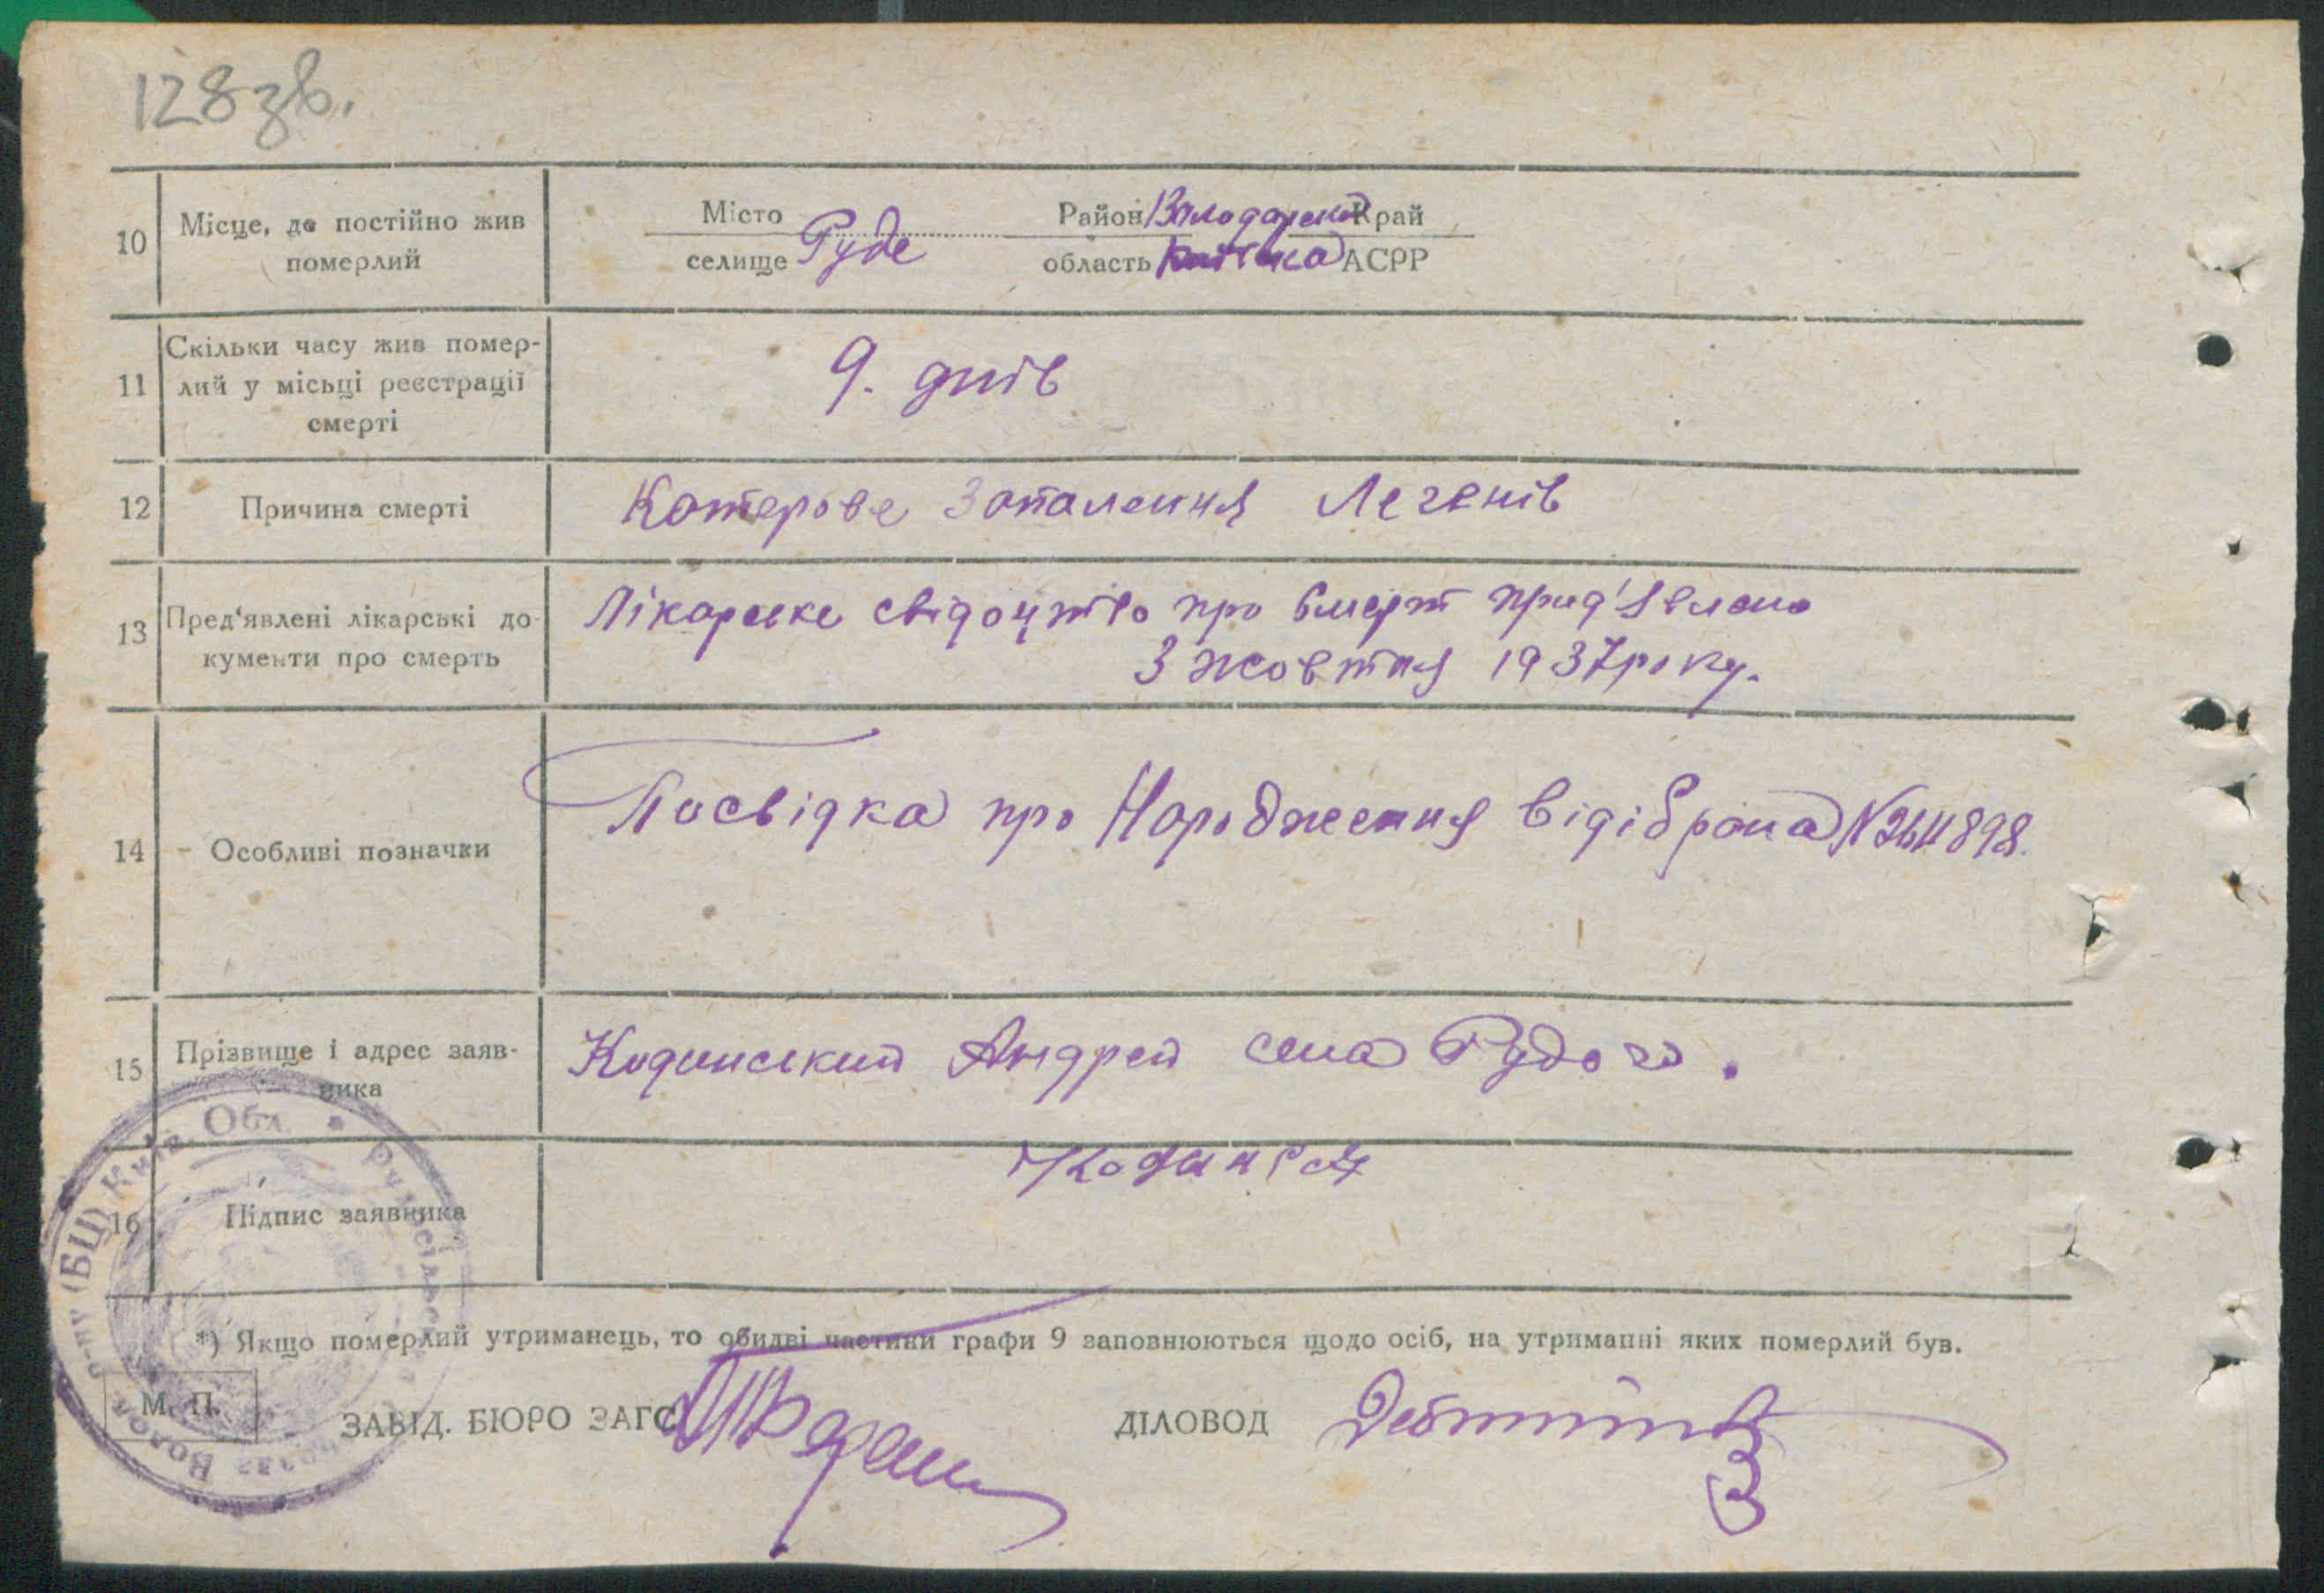 128зв.
10
Місце, де постійно жив
померлий
Місто
селище Руде
Район Володарськ Край
область Київська АСРР
11
Скільки часу жив помер-
лий у місьці реєстрації
смерті
9. днів
12
Причина смерті
Катерове Запалення Легенів
13
Пред'явлені лікарські до-
кументи про смерть
Лікарське свідоцтво про смерт пред'явлено
3 жовтня 1937 року.
14
Особливі позначки
Посвідка про Народження відібрана №
15
Прізвище і адрес заяв-
ника
Кодинський Андрей села Рудого.
16
Підпис заявника
*) Якщо померлий утриманець, то обидві частини графи 9 заповнюються щодо осіб, на утриманні яких померлий був.
М. П.
ЗАВІД. БЮРО ЗАГС
ДІЛОВОД
р-ну (БЦ) Київ. Обл.